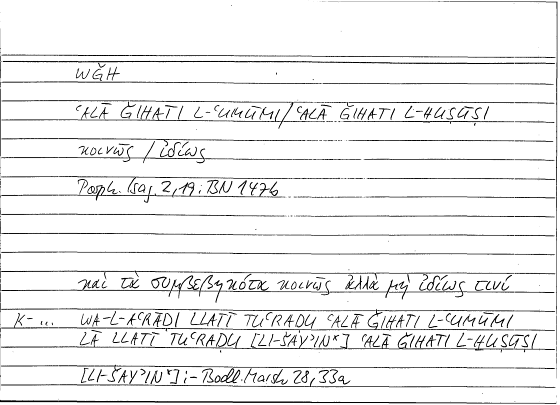 WǦH
ʿALĀ ǦIHATI L-ʿUMŪMI/ʿALĀ ǦIHATI L-ḪUṢŪṢI
κοινῶς / ἰδίως
Porph. Isag. 2,19; BN 147b
καὶ τὰ συμβεβηκότα κοινῶς ἀλλὰ μὴ ἰδίως τινί
K-... WA-L-AʿRĀḌI LLATĪ TUʿRAḌU ʿALĀ ǦIHATI L-ʿUMŪMI
LĀ LLATĪ TUʿRAḌU [LI-ŠAYʾIN*] ʿALĀ ǦIHATI L-ḪUṢŪṢI
[LI-ŠAYʾIN*]:- Bodl. Marsh 28,33a